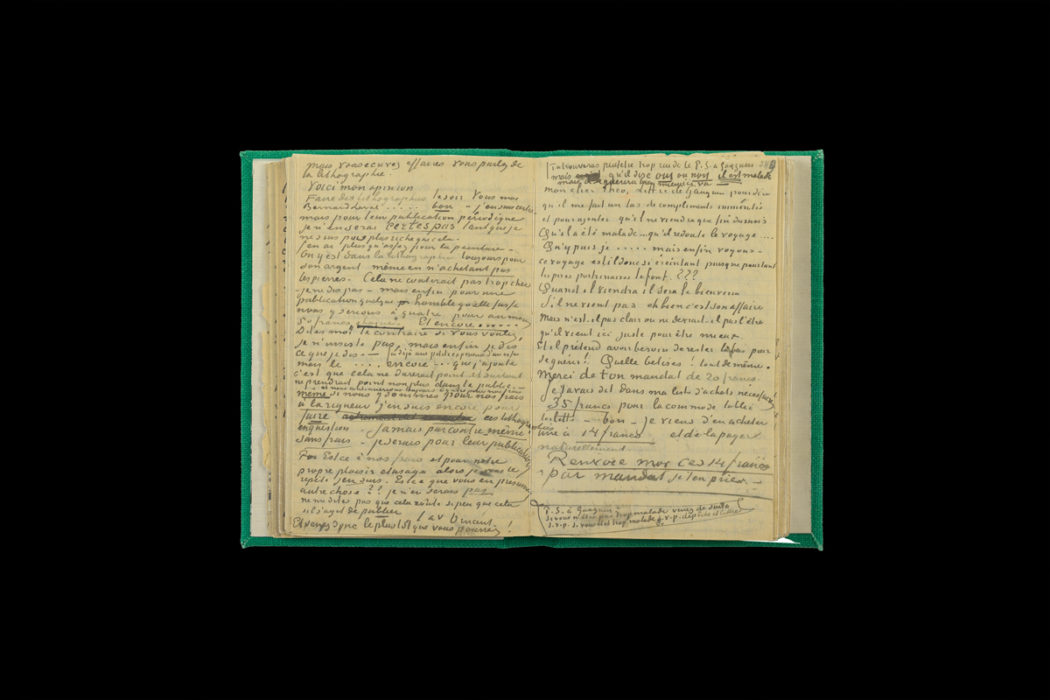 mais vous avez affaires vous parlez de
la lithographie.
Voici mon opinion
Faire des lithographies le soir Vous mon
Bernard Laval ..... bon – j'en suis certes
mais pour leur publication périodique
je n'en serai certes pas tant que je
ne suis pas plus riche que cela.
J'en ai plus qu'assez pour la peinture –
On y est dans la lithographie toujours pour
son argent même en n'achetant pas
les pierres. Cela ne couterait pas trop cher
– je ne dis pas – mais enfin pour une
publication quelque humble qu'elle fusse
nous y serions à quatre pour au moins
50 francs chaque. Et encore .....
Dites moi le contraire si vous voulez
je n'insiste pas, mais enfin je dis
ce que je dis –
mais le .... encore ... que j'ajoute
c'est que cela ne durerait point et surtout
ne prendrait point non plus dans le public –
même si nous y sommes pour nos frais
à la rigueur j'en suis encore pour
faire ces lithographies
en question – Jamais par contre même
sans frais – je serais pour leur publication
Fois Est ce à nos frais et pour notre
propre plaisir et usage alors je vous le
repète j'en suis. Est ce que vous en presumez
autre chose ?? je n'en serais pas
ne me dites pas que cela coûte si peu que cela
s'il s'agit de publier
t. à v. Vincent
Et venez donc le plus tôt que vous pourrez !
Tu trouveras peutetre trop rude le P.S. à Gauguin
mais qu'il dise oui ou non il est malade
mon cher Theo, lettre de Gauguin pour dire
qu'il me fait un tas de compliments immérités
et pour ajouter qu'il ne viendra que fin du mois
Qu'il a été malade ... qu'il redoute le voyage ....
Qu'y puis je ..... mais enfin voyons –
ce voyage est il donc si éreintant puisque pourtant
les pires poitrinaires le font. ???
Quand il viendra il sera le bienvenu
S'il ne vient pas eh bien c'est son affaire
Mais n'est-il pas clair ou ne devrait-il pas l'être
qu'il vient ici juste pour être mieux
Et il prétend avoir besoin de rester là bas pour
se guérir! Quelle betises! tout de même.
Merci de ton mandat de 20 francs
je t'avais dit dans ma liste d'achats nécessaires
35 francs pour la commode
– bon – je viens d'en acheter
une à 14 francs et de la payer
naturellement
Renvoie moi ces 14 francs
par mandat je t'en prie. –
P.S. à Gauguin
si vous n'êtes pas trop malade venez de suite
s.v.p. si vous êtes trop malade s.v.p. dépêche et lettre